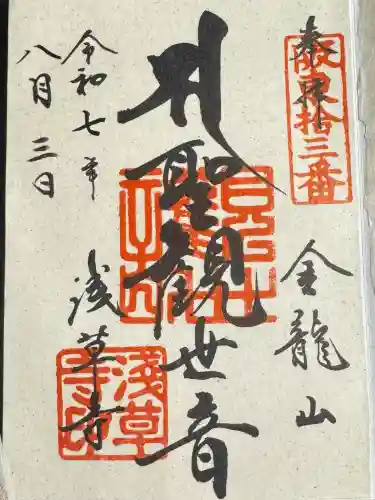 奉拝
坂東拾三番
金龍山
聖観世音
浅草寺
令和七年
八月三日
淺草